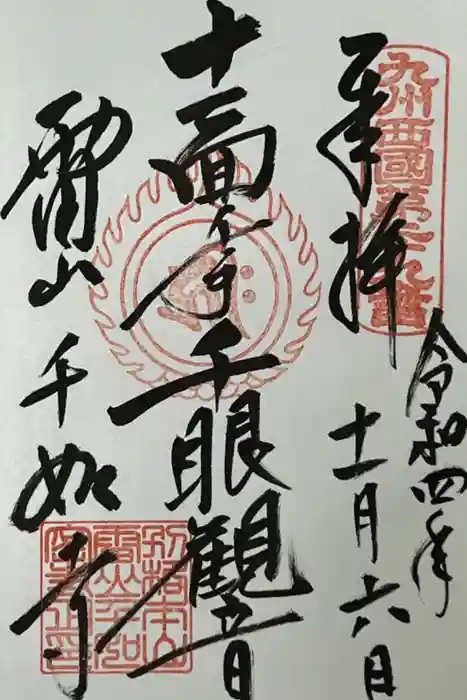 九州西國第二九番
奉拝
令和四年
十一月六日
十一面千手千眼觀音
雷山千如寺